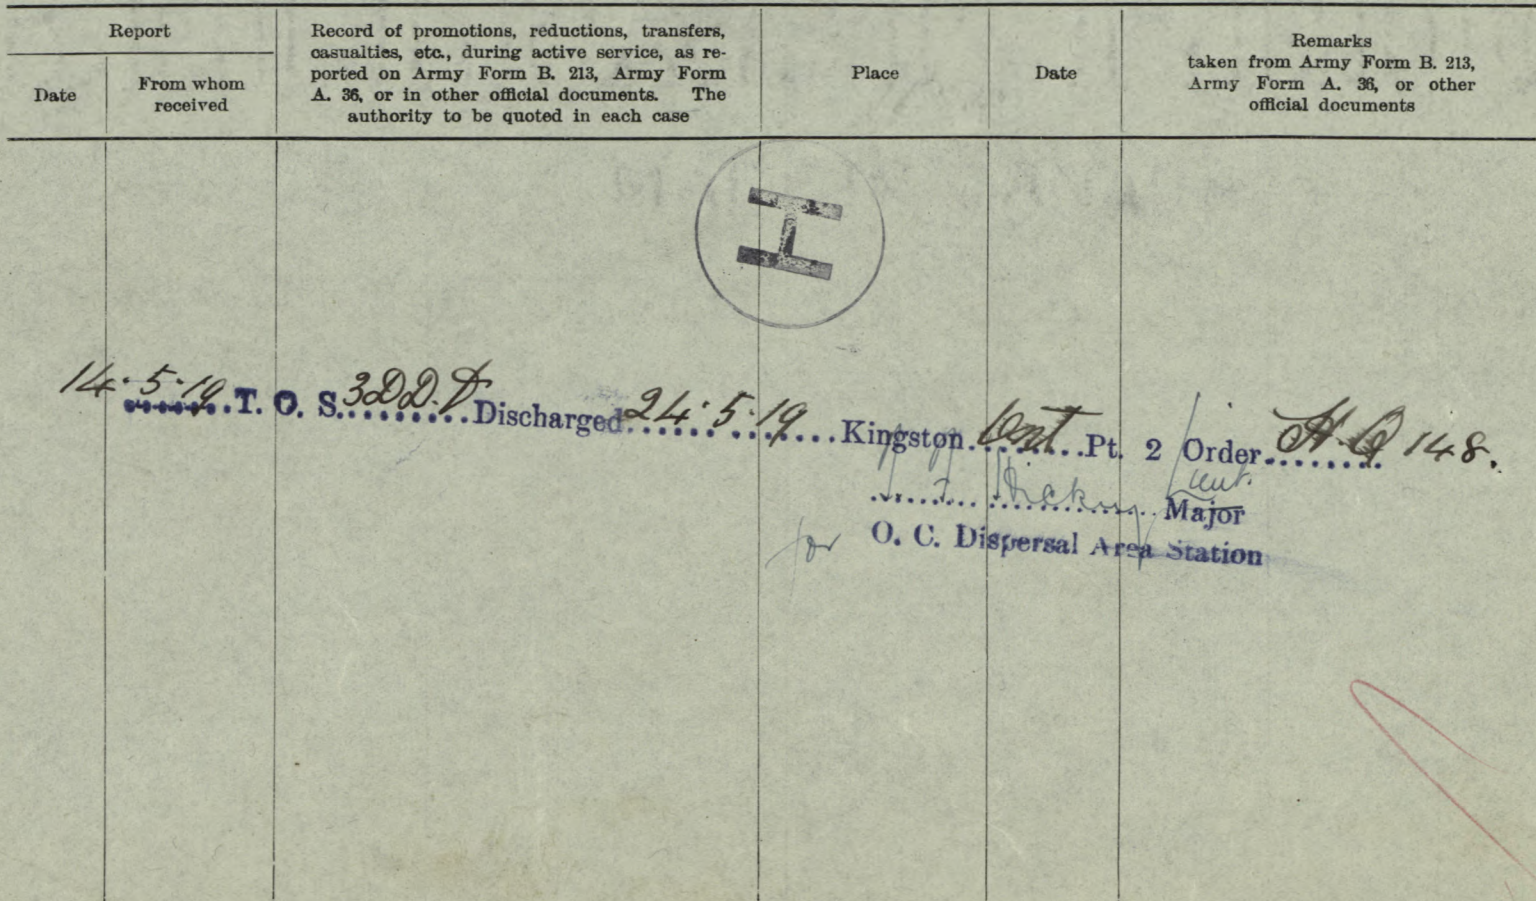 Report
Date
From whom
received
Record of promotions, reductions, transfers,
casualties, etc., during active service, as re-
ported on Army Form B. 213, Army Form
A. 36, or in other official documents. The
authority to be quoted in each case
Place
Date
Remarks
taken from Army Form B. 213,
Army Form A. 36, or other
official documents
H
14.5.19 T. O. S. 3DD.D Discharged 24.5.19 Kingston Ont Pt. 2 Order H.Q 148.
Lieut.
Major
for O. C. Dispersal Area Station